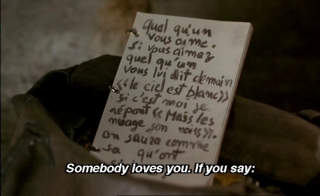 quel qu'un
vous aime.
si vous aimez
quel qu'un
vous lui dit demain
«le ciel est blanc»
si c'est moi je
répont « Mais les
nuage son noirs».
on saura comme
sa qu'ont
Somebody loves you. If you say: